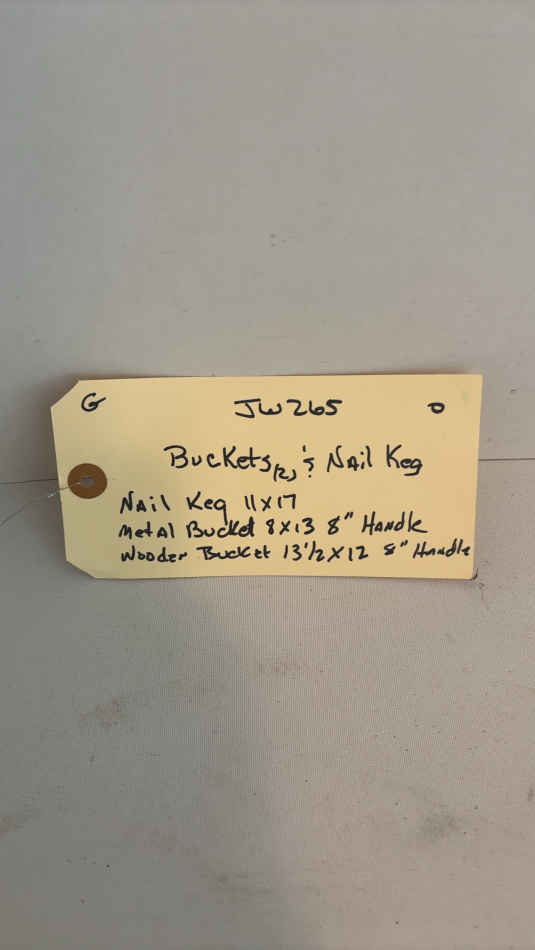 G JW265 O
Buckets (2) & Nail Keg
Nail Keg 11x17
Metal Bucket 8x13 8" Handle
Wooden Bucket 13 1/2 x 12 8" Handle